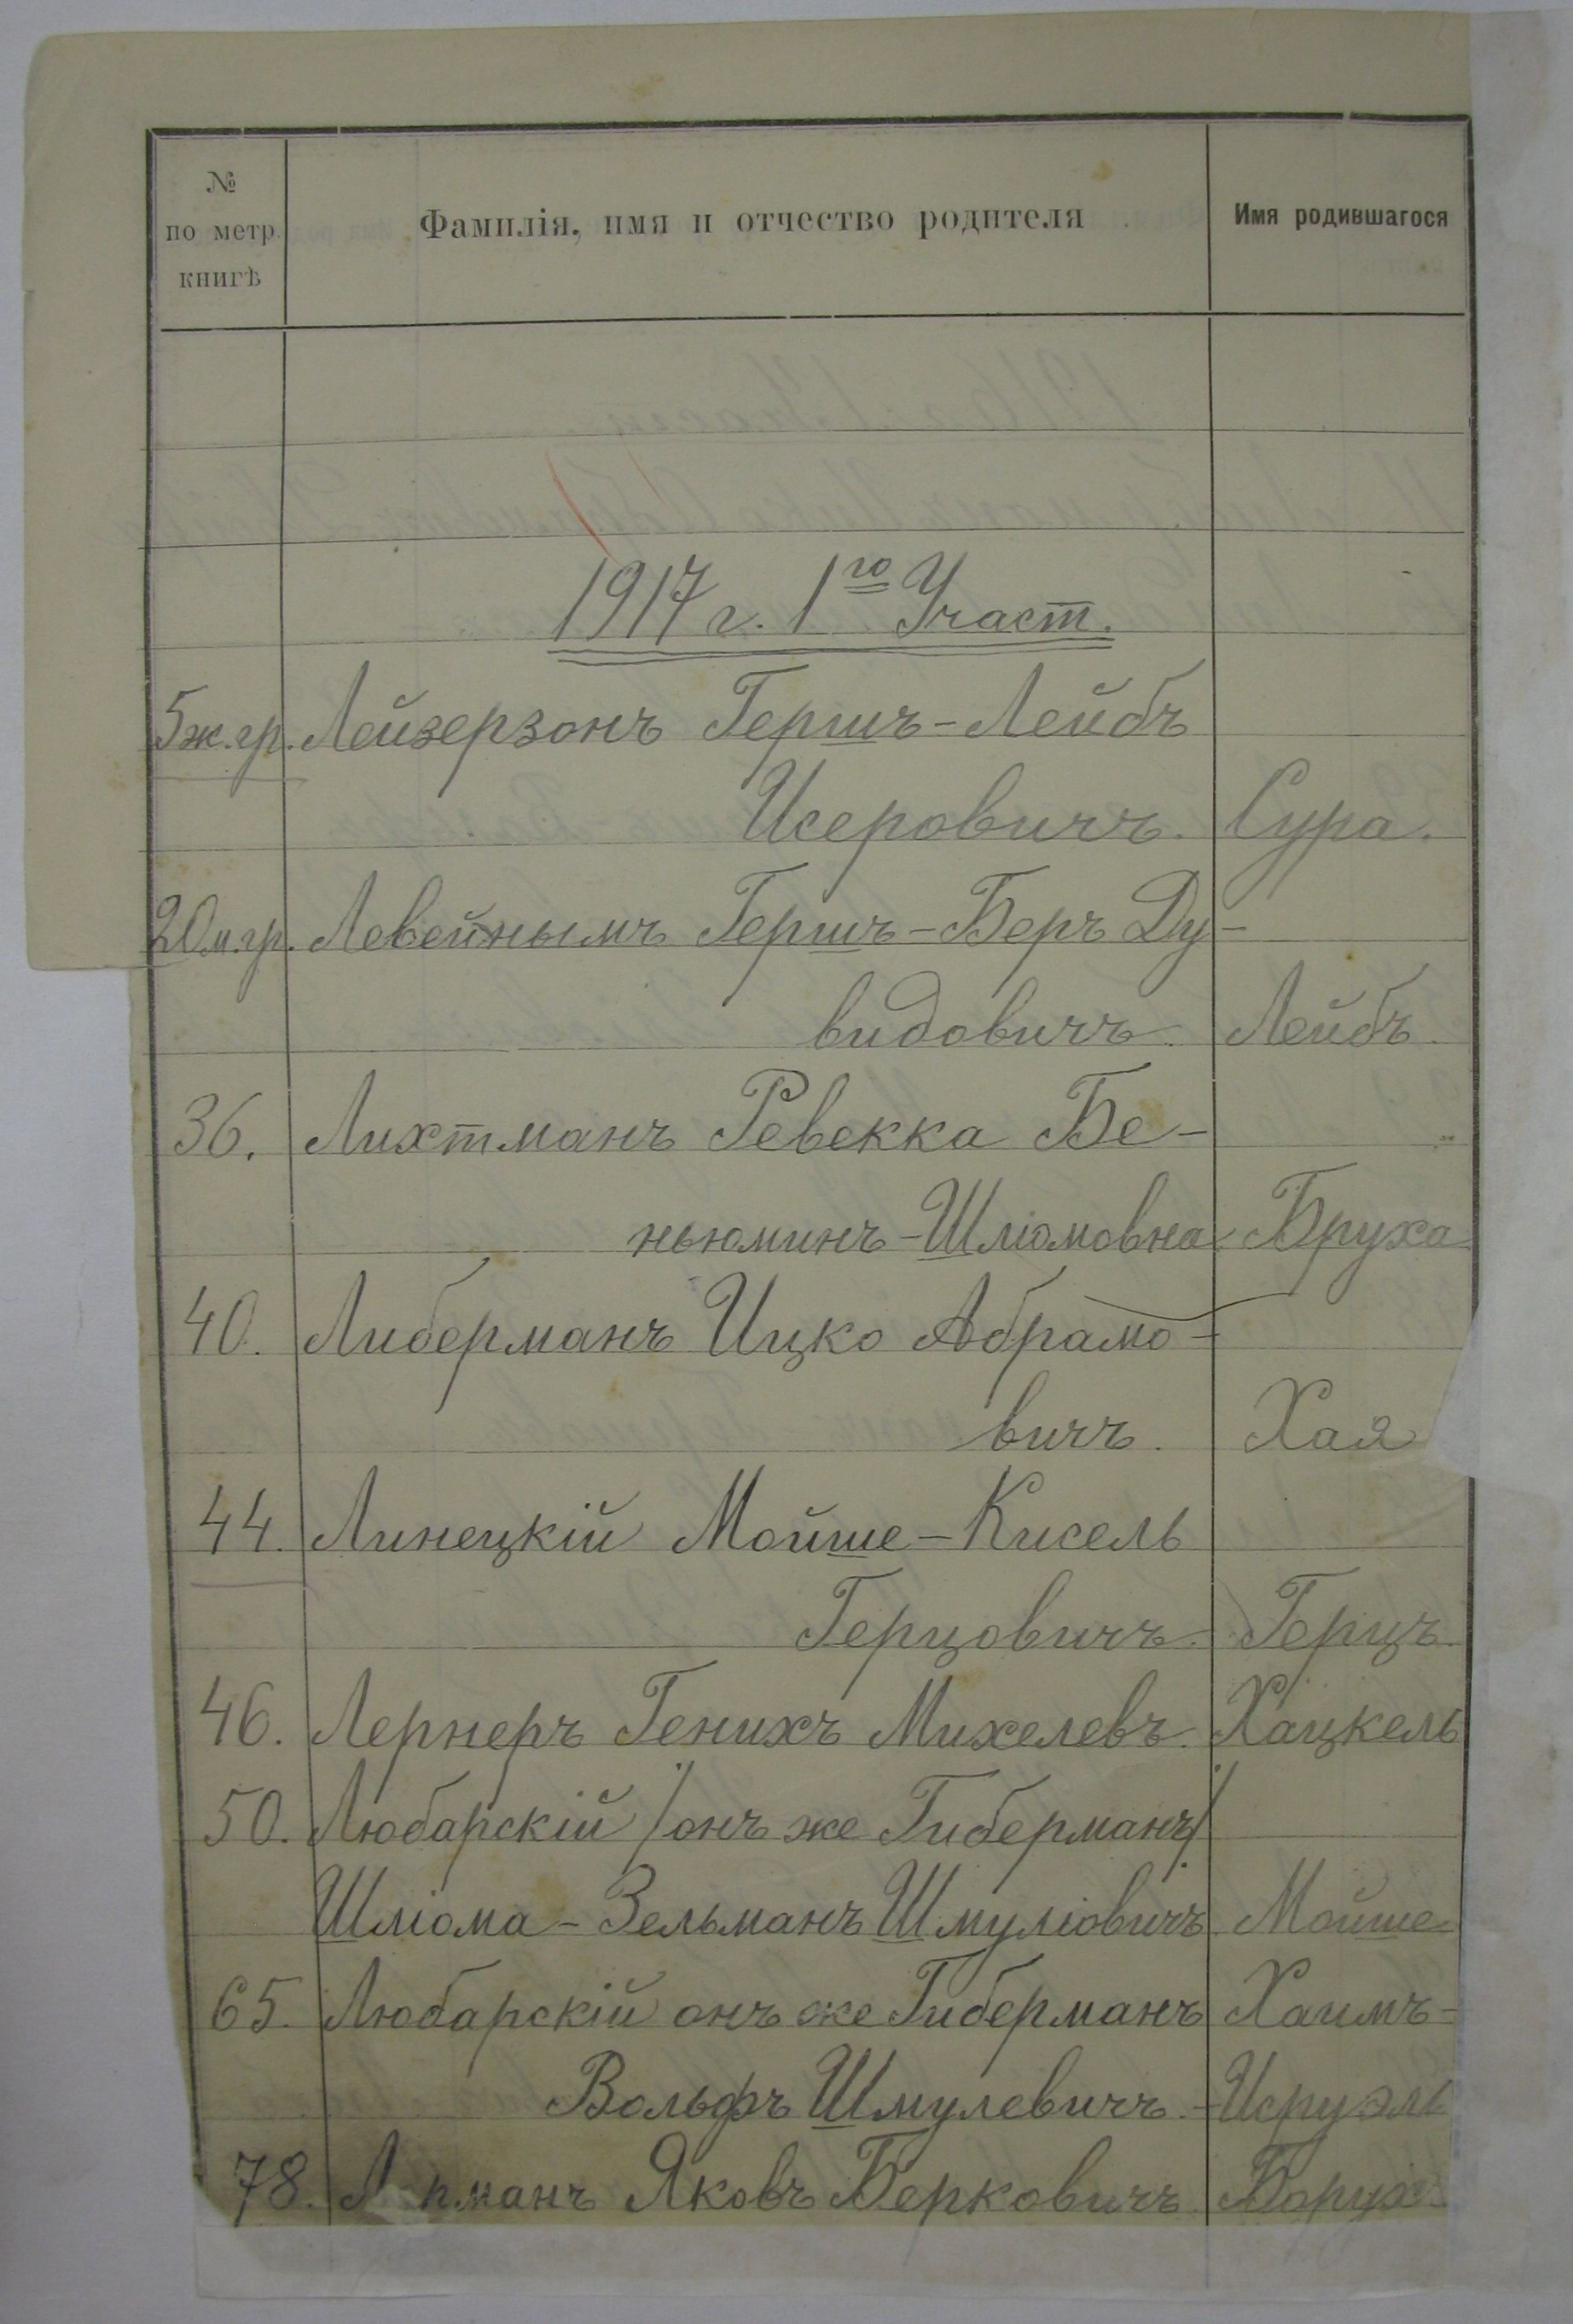 № по метр книгѣ Фамилія, имя и отчество родителя Имя родившагося
1917 г. 1го Участ.
5 ж.гр. Лейзерзонъ Гершъ-Лейбъ
Исеровичъ. Сура.
20 м.гр. Левейнымъ Гершъ-Беръ Ду-
видовичъ. Лейбъ.
36. Лихтманъ Ревекка Бе-
ньюминъ-Шліомовна Бруха
40. Либерманъ Ицко Абрамо-
вичъ. Хая
44. Линецкій Мойше-Кисель
Герцовичъ. Герцъ.
46. Лернеръ Генихъ Михелевъ. Хацкель
50. Любарскій /онъ же Гиберманъ/
Шліома-Зельманъ Шмуліовичъ Мойше
65. Любарскій онъ же Гиберманъ Хаимъ-
Вольфъ Шмулевичъ. -Исруэль
78. Яковъ Берковичъ Борухъ